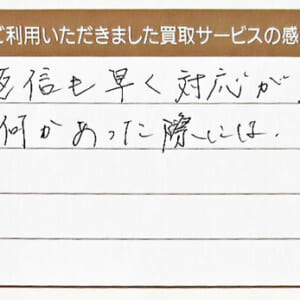 ご利用いただきました買取サービスの感
返信も早く対応が
何かあった際には、